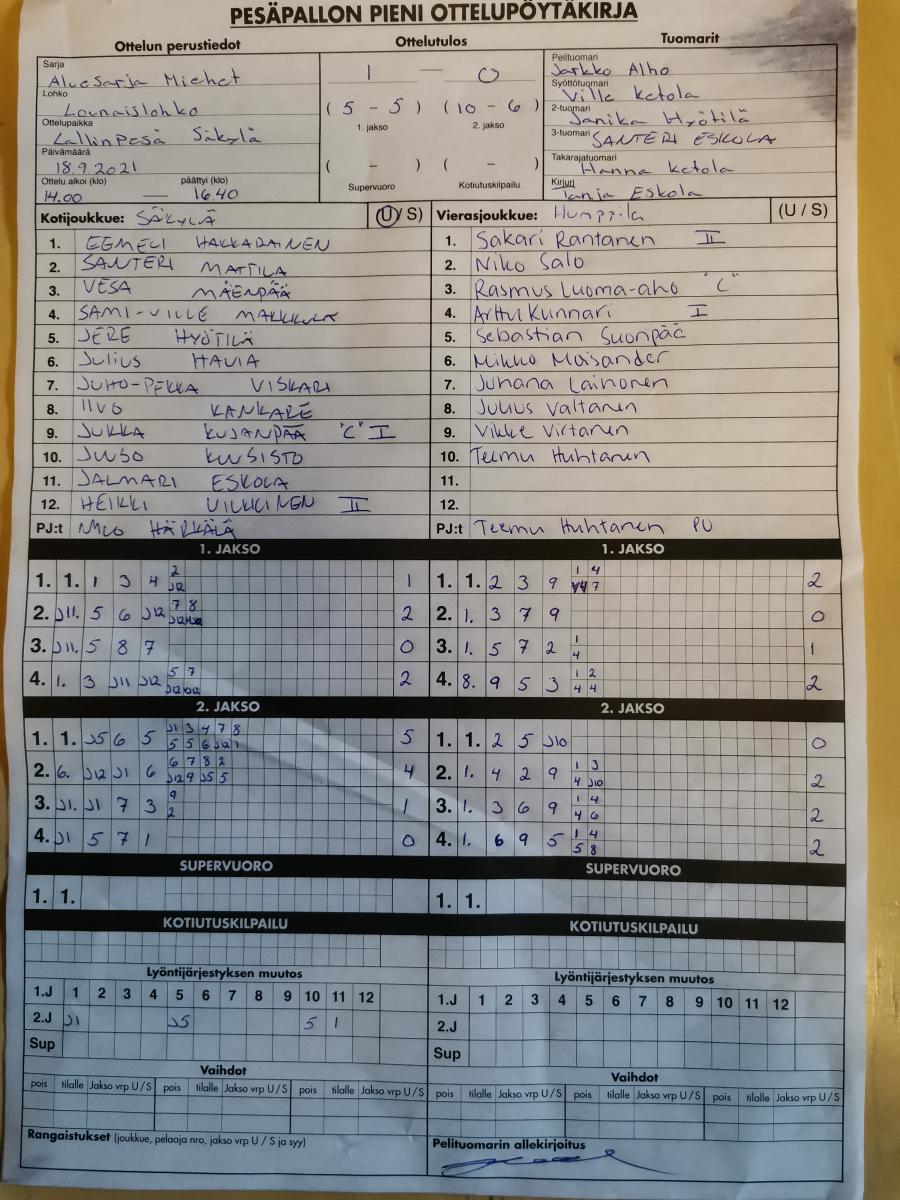 PESÄPALLON PIENI OTTELUPÖYTÄKIRJA
Ottelun perustiedot Ottelutulos Tuomarit
Sarja
Aluesarja Miehet
Lohko
Lounaislohko
Ottelupaikka
Lallinpesä Säkylä
Päivämäärä
18.9.2021
Ottelu alkoi (klo) päättyi (klo)
14.00 — 16.40
1 — 0
( 5 - 5 ) ( 10 - 6 )
1. jakso 2. jakso
( - ) ( - )
Supervuoro Kotiutuskilpailu
Pelituomari
Jarkko Alho
Syöttötuomari
Ville Ketola
2-tuomari
Janika Hyötilä
3-tuomari
SANTERI ESKOLA
Takarajatuomari
Hanna Ketola
Kirjuri
Tanja Eskola
Kotijoukkue: SÄKYLÄ (U/ S)
1. EEMELI HAKKARAINEN
2. SANTERI MATTILA
3. VESA MÄENPÄÄ
4. SAMI-VILLE
5. JERE HYÖTILÄ
6. JULIUS HAVIA
7. JUHO-PEKKA VISKARI
8. IIVO KANKARE
9. JUKKA KUJANPÄÄ "C" I
10. JUUSO KUUSISTO
11. JALMARI ESKOLA
12. HEIKKI VILKKINEN II
PJ:t HÄRKÄLÄ
Vierasjoukkue: Humppila (U / S)
1. Sakari Rantanen II
2. Niko Salo
3. Rasmus Luoma-aho "C"
4. Arttu Kunnari I
5. Sebastian Suonpää
6. Mikko Moisander
7. Juhana Lainonen
8. Julius Valtanen
9. Vikke Virtanen
10. Teemu Huhtanen
11.
12.
PJ:t Teemu Huhtanen PU
1. JAKSO
1. 1. 1 3 4 2 1
J12
2. J11. 5 6 J12 7 8 2
3. J11. 5 8 7 0
4. 1. 3 J11 J12 5 7 2
2. JAKSO
1. 1. J5 6 5 J1 3 4 7 8 5
5 5 6 J12 1
2. 6. J12 J1 6 6 7 8 2 4
J12 9 J5 5
3. J1. J1 7 3 9 1
2
4. J1 5 7 1 0
SUPERVUORO
1. 1.
KOTIUTUSKILPAILU
1. JAKSO
1. 1. 2 3 9 1 4 2
7
2. 1. 3 7 9 0
3. 1. 5 7 2 1 1
4
4. 8. 9 5 3 1 2 2
4 4
2. JAKSO
1. 1. 2 5 J10 0
2. 1. 4 2 9 1 3 2
4 J10
3. 1. 3 6 9 1 4 2
4 6
4. 1. 6 9 5 1 4 2
5 8
SUPERVUORO
1. 1.
KOTIUTUSKILPAILU
Lyöntijärjestyksen muutos
1.J 1 2 3 4 5 6 7 8 9 10 11 12
2.J J1 J5 5 1
Sup
Vaihdot
pois tilalle Jakso vrp U / S pois tilalle Jakso vrp U / S pois tilalle Jakso vrp U / S
Rangaistukset (joukkue, pelaaja nro, jakso vrp U / S ja syy)
Lyöntijärjestyksen muutos
1.J 1 2 3 4 5 6 7 8 9 10 11 12
2.J
Sup
Vaihdot
pois tilalle Jakso vrp U / S pois tilalle Jakso vrp U / S pois tilalle Jakso vrp U / S
Pelituomarin allekirjoitus